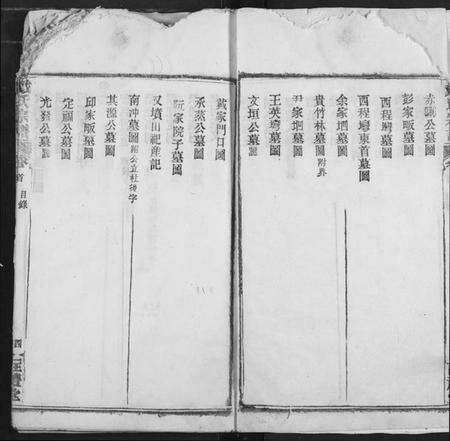 赤璣公墓圖
彭家畈墓圖
西程塆墓圖
西程塆東首墓圖
余家塆墓圖
貴竹林墓圖附界
尹家塆墓圖
王英塆墓圖
文垣公墓圖
戴家門口圖
承蒸公墓圖
阮家院子墓圖
又墳山祀產記
南冲墓圖
其源公墓圖
邱家畈墓圖
定福公墓圖
光發公墓圖
首 目錄
四